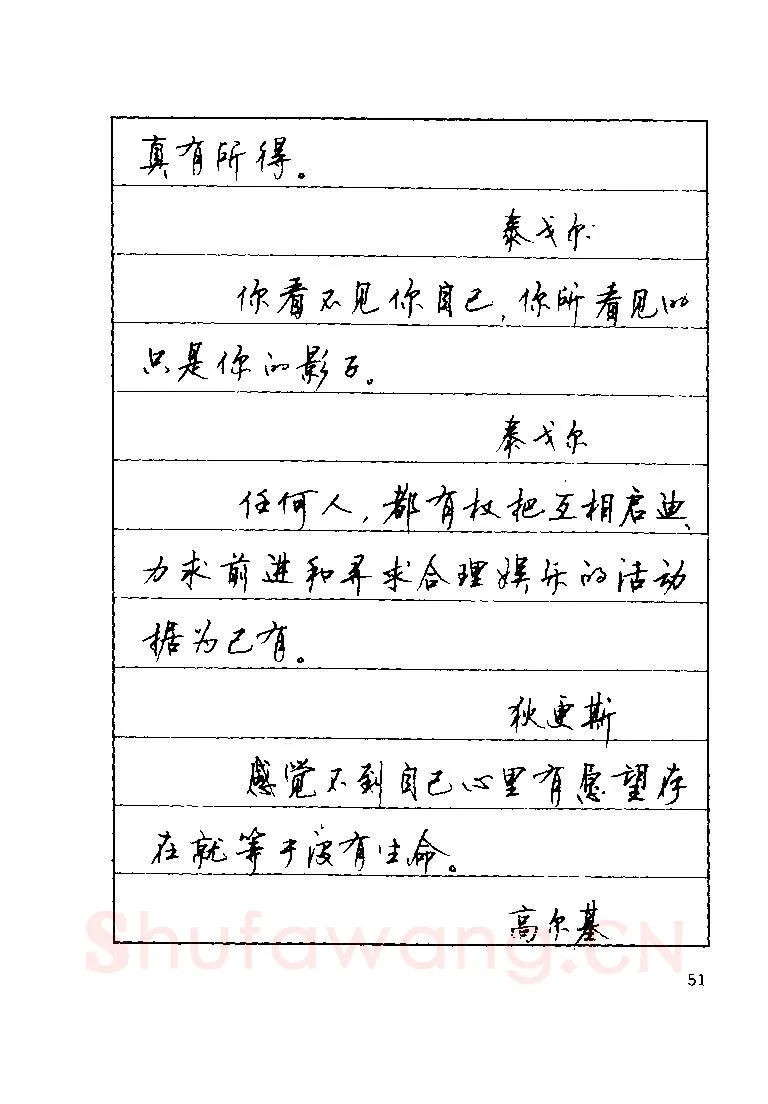 真有所得。
泰戈尔
你看不见你自己，你所看见的
只是你的影子。
泰戈尔
任何人，都有权把互相启迪、
力求前进和寻求合理娱乐的活动
据为己有。
狄更斯
感觉不到自己心里有愿望存
在就等于没有生命。
高尔基
Shufawang.CN
51